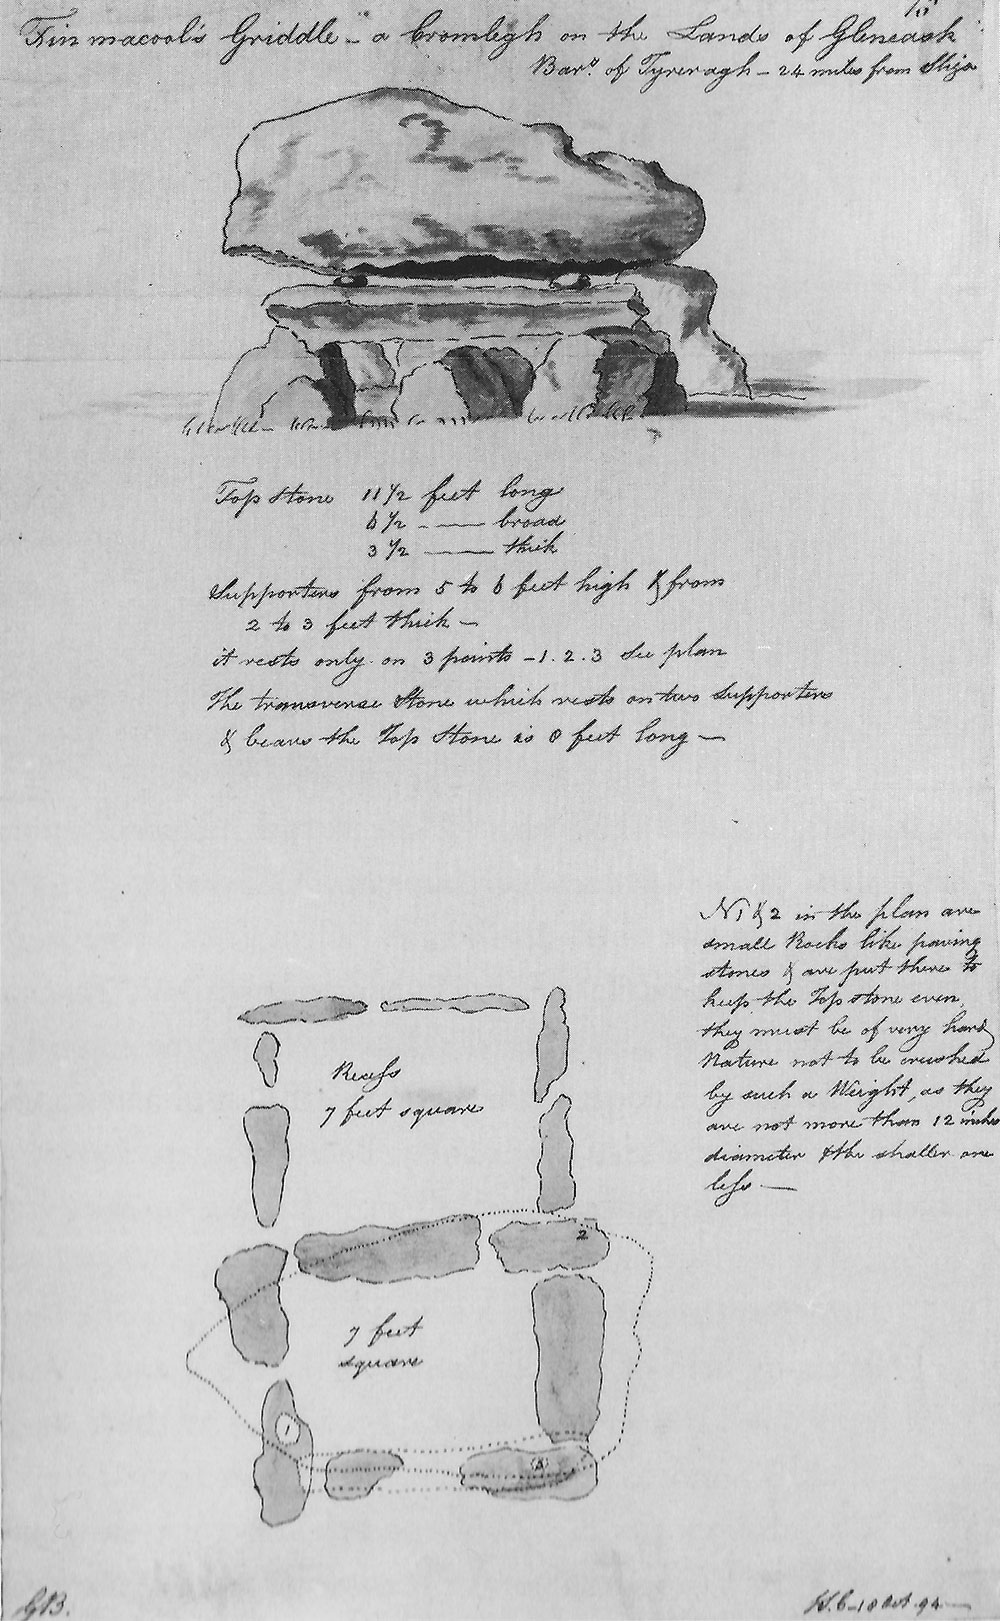 15
Finmacool's Griddle - a Cromlegh on the Lands of Gleneask
Barʸ. of Tyreragh - 24 miles from Sligo
Top stone 11 1/2 feet long
6 1/2 - — broad
3 1/2 — thick
Supporters from 5 to 6 feet high & from
2 to 3 feet thick -
it rests only on 3 points - 1. 2. 3 See plan
The transverse Stone which rests on two supporters
& bears the Top Stone is 8 feet long —
N1 & 2 in the plan are
small Rocks like paving
stones & are put there to
keep the Top stone even,
they must be of very hard
Nature not to be crushed
by such a Weight, as they
are not more than 12 inches
diameter & the smaller one
less —
Recess
7 feet square
2
7 feet
square
1
3
GB.
10 Oct. 94 —